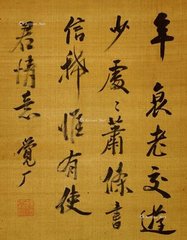 年衰老交遊
少處々蕭條書
信稀惟有使
君情意
覺厂